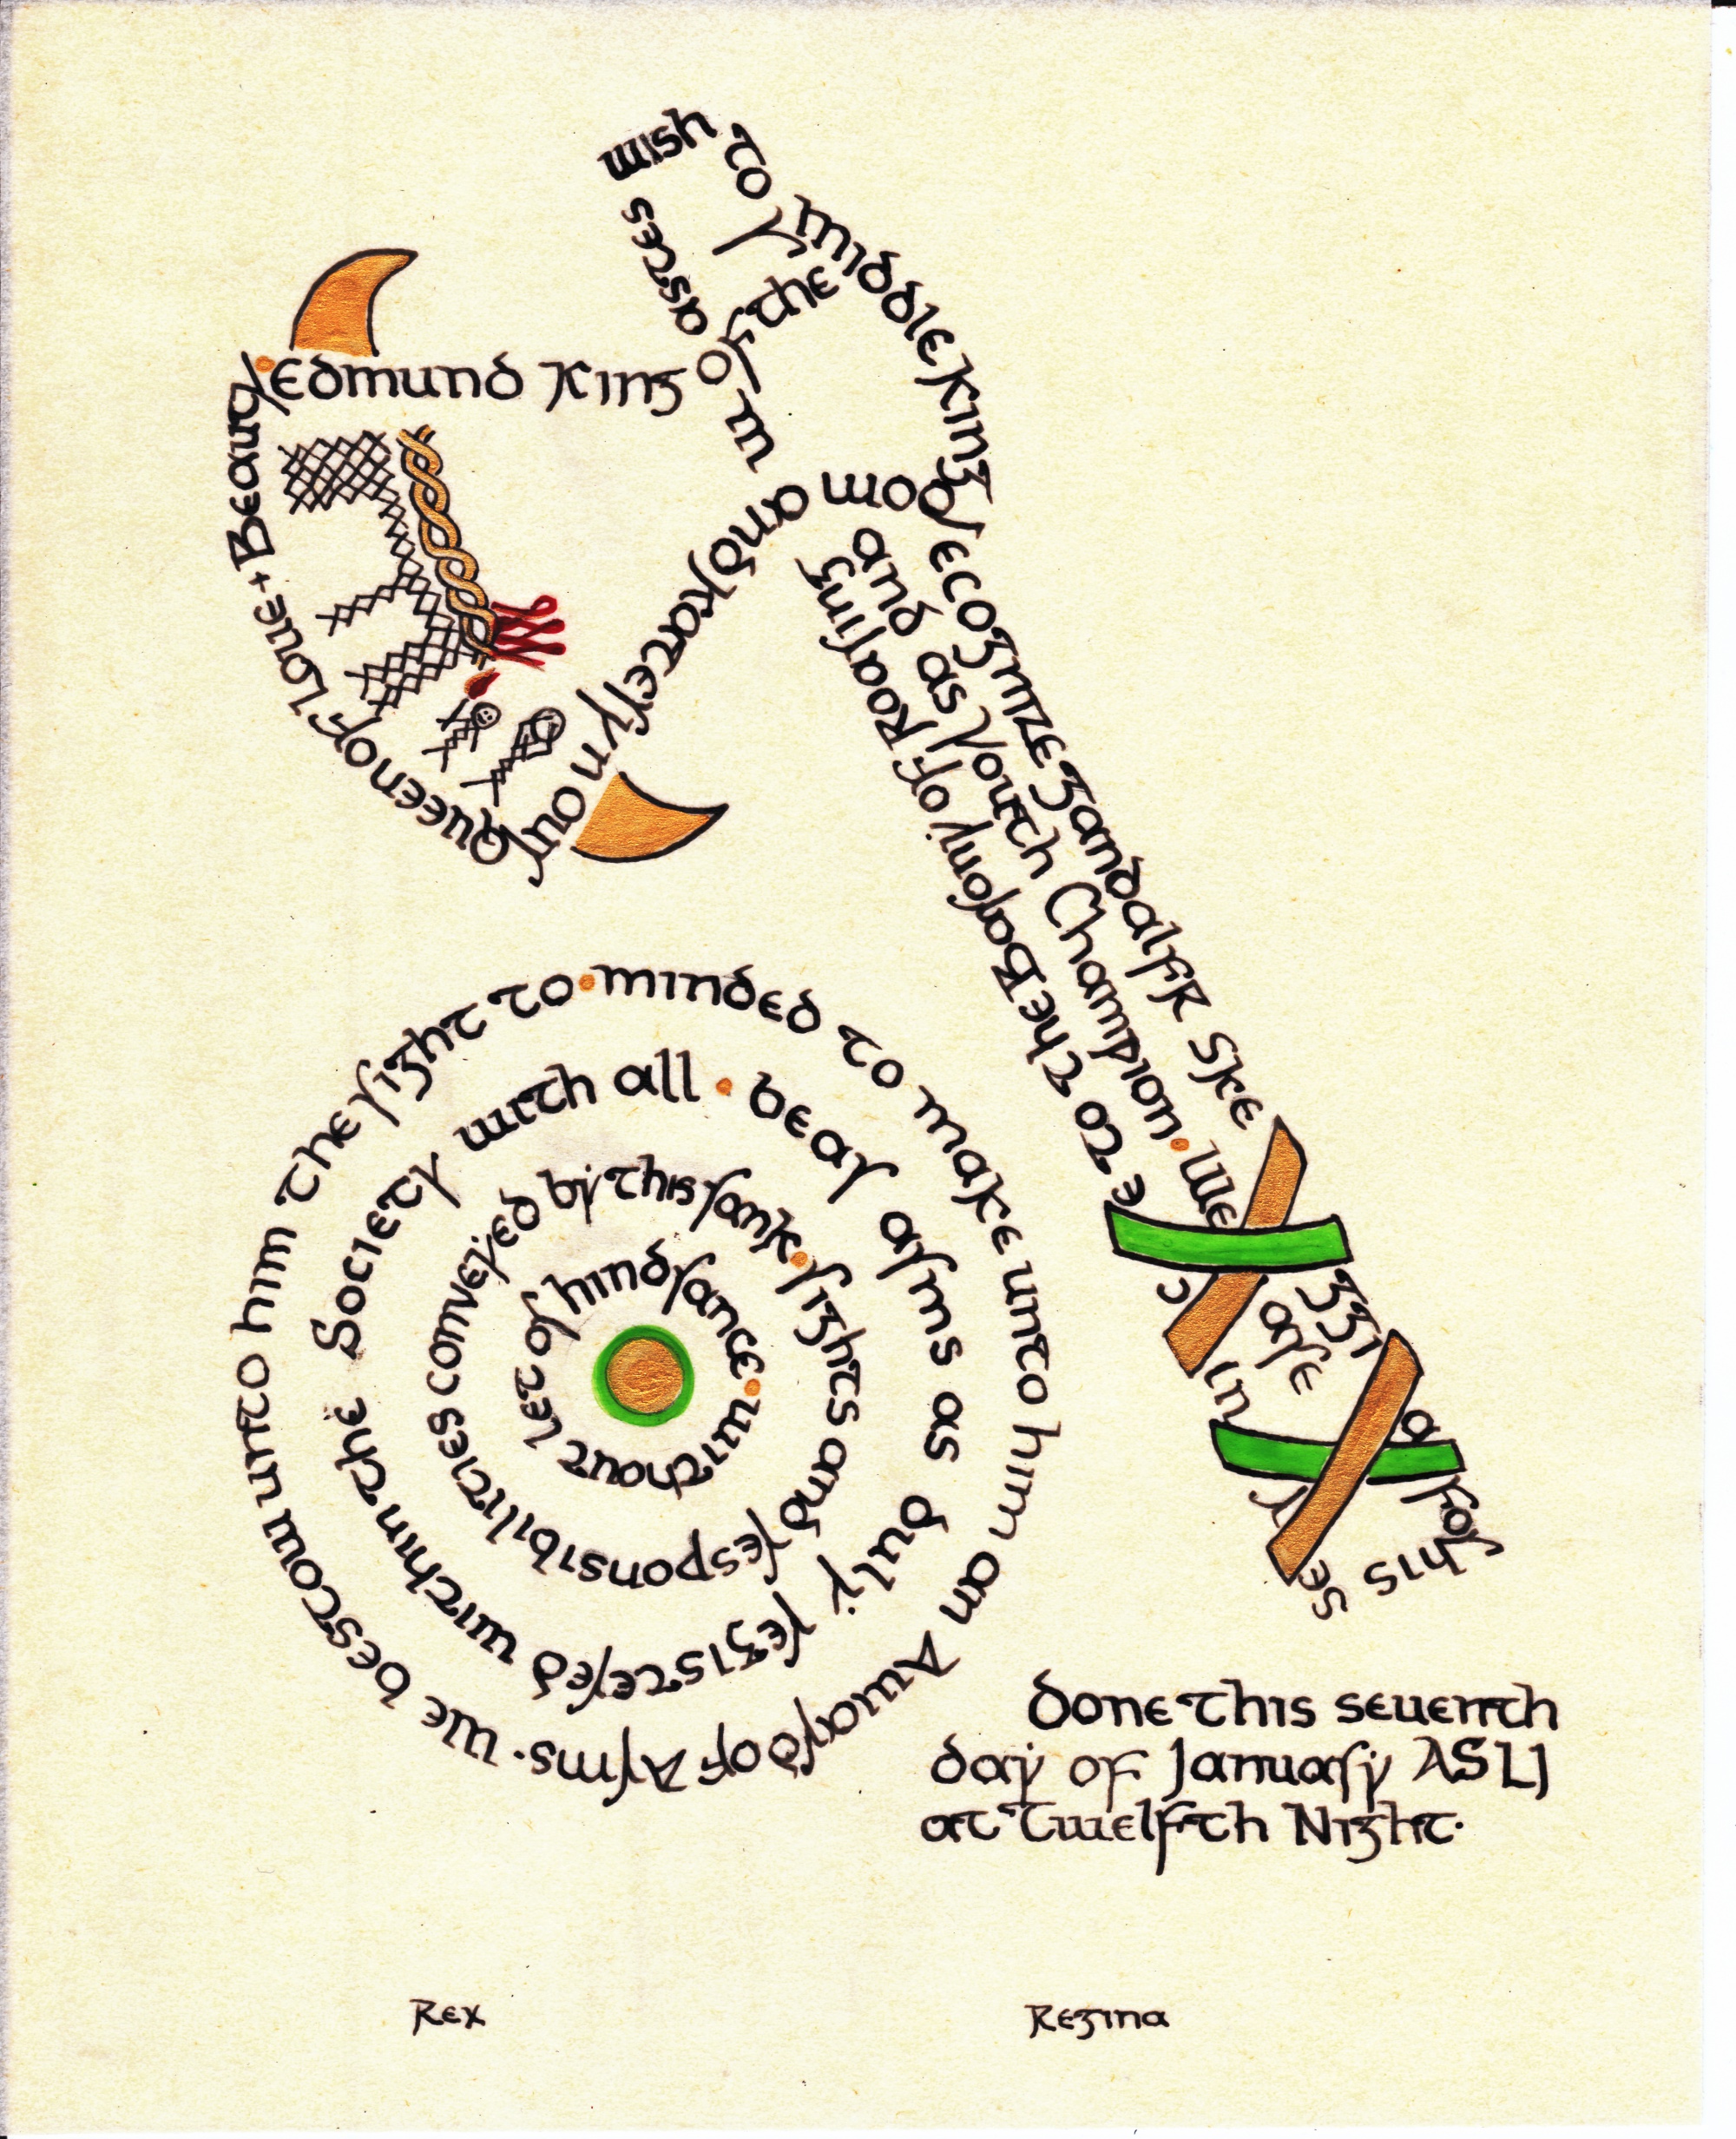 Edmund King of the Middle Kingdom
and Kateryn our
Queen of Love + Beauty
wish to recognize Gandalfr Skeggi for his
service to the Barony of Roaring Wastes
and as Youth Champion. We are
minded to make unto him an Award of Arms. We bestow unto him the right to
bear arms as duly registered within the Society with all
rights and responsibilities conveyed by this rank
without let or hindrance
Done this seventh
day of January AS LI
at Twelfth Night.
Rex
Regina